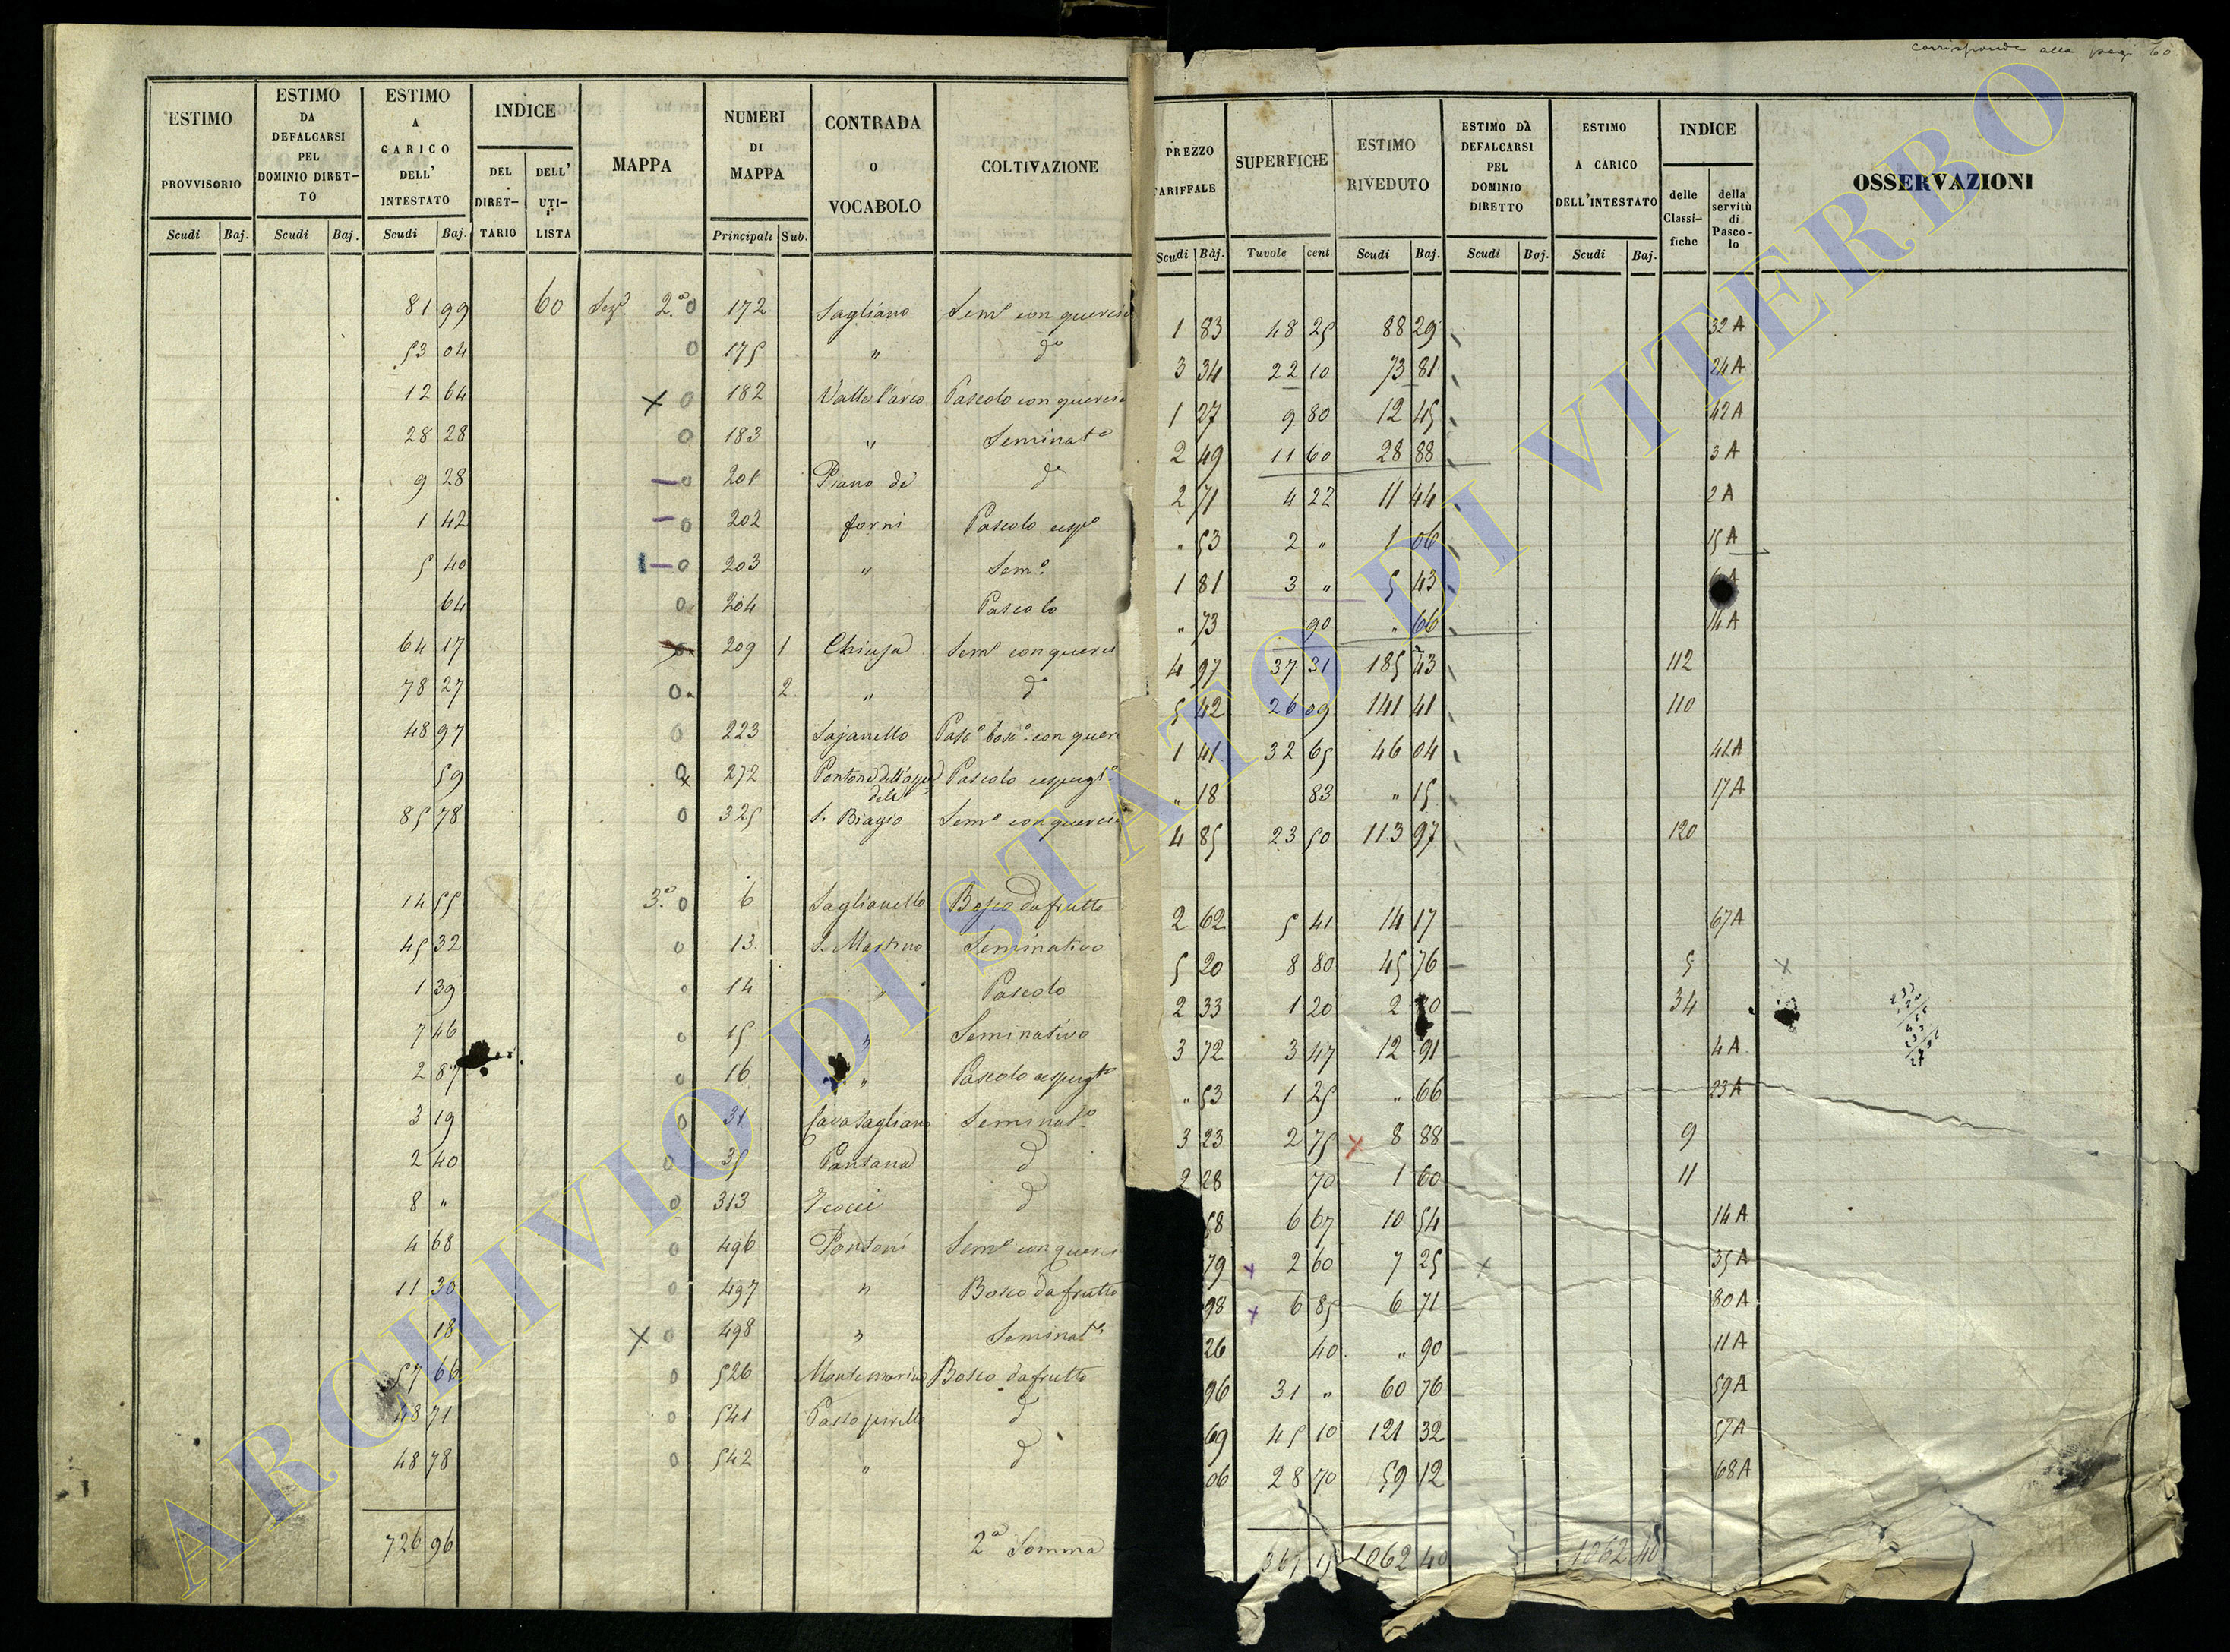 corrisponde alla pag 60
ESTIMO PROVVISORIO
ESTIMO DA DEFALCARSI PEL DOMINIO DIRET-TO
ESTIMO A CARICO DELL' INTESTATO
INDICE
DEL DIRET-TARIO
DELL' UTI-LISTA
MAPPA
NUMERI DI MAPPA
CONTRADA o VOCABOLO
COLTIVAZIONE
Scudi Baj. Scudi Baj. Scudi Baj. Principali Sub.
81 99 60 Seze. 2.a 0 172 Sagliano Seme con querci
53 04 0 175 " do
12 64 x 0 182 Valle l'arco Pascolo con querci
28 28 0 183 " Seminato
9 28 — 0 201 Piano de do
1 42 — 0 202 forni Pascolo cespo
5 40 — 0 203 " Semo.
64 0 204 Pascolo
64 17 209 1 Chiusa Seme con querci
78 27 0 2 " do
48 97 0 223 Sajanello Paso boso con quer
59 0 272 Pascolo cespugto
85 78 0 325 S. Biagio Seme con querci
14 55 3.a 0 6 Saglianello Bosco da frutto
45 32 0 13 S. Martino Seminativo
1 39 0 14 " Pascolo
7 46 0 15 " Seminativo
2 87 0 16 " Pascolo cespugto
3 19 0 31 Cava Sagliano Seminato
2 40 0 35 Pantana d
8 " 0 313 d
4 68 0 496 Pontoni Seme con querci
11 30 0 497 " Bosco da frutto
18 x 0 498 " Seminato
57 66 0 526 Montemarino Bosco da frutto
48 71 0 541 d
48 78 0 542 " d
726 96 2a Somma
PREZZO TARIFFALE
SUPERFICIE
ESTIMO RIVEDUTO
ESTIMO DA DEFALCARSI PEL DOMINIO DIRETTO
ESTIMO A CARICO DELL'INTESTATO
INDICE
delle Classi-fiche
della servitù di Pasco-lo
OSSERVAZIONI
Scudi Baj. Tavole cent Scudi Baj. Scudi Baj. Scudi Baj.
1 83 48 25 88 29 32 A
3 34 22 10 73 81 24 A
1 27 9 80 12 45 42 A
2 49 11 60 28 88 3 A
2 71 4 22 11 44 2 A
" 53 2 " 1 06 15 A
1 81 3 " 5 43
" 73 90 " 66 14 A
4 97 37 31 185 43 112
5 42 26 09 141 41 110
1 41 32 65 46 04 41 A
" 18 83 " 15 17 A
4 85 23 50 113 97 120
2 62 5 41 14 17 67 A
5 20 8 80 45 76 5 x
2 33 1 20 2 80 34
3 72 3 47 12 91 4 A
" 53 1 25 " 66 23 A
3 23 2 75 x 8 88 9
2 28 70 1 60 11
58 6 67 10 54 14 A
79 x 2 60 7 25 x 35 A
98 x 6 85 6 71 80 A
26 40 " 90 11 A
96 31 " 60 76 59 A
69 45 10 121 32 57 A
06 28 70 59 12 68 A
367 15 1062 40 1062 40
ARCHIVIO DI STATO DI VITERBO